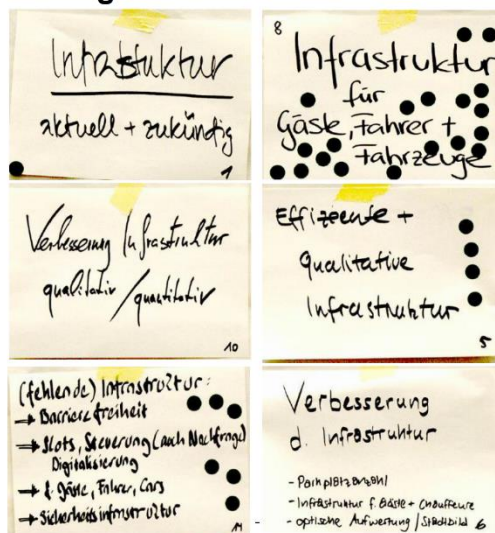 Infrastuktur
aktuell + zukünftig
1
8
Infrastruktur
für
Gäste, Fahrer +
Fahrzeuge
Verbesserung Infrastruktur
qualitativ / quantitativ
10
Effiziente +
Qualitative
Infrastruktur
5
(fehlende) Infrastruktur:
→ Barrierefreiheit
→ Slots, Steuerung (auch Nachfrage)
Digitalisierung
→ f. Gäste, Fahrer, Cars
→ Sicherheitsinfrastruktur
Verbesserung
d. Infrastruktur
- Parkplatzanzahl
- Infrastruktur f. Gäste + Chauffeure
- optische Aufwertung / Stadtbild
6